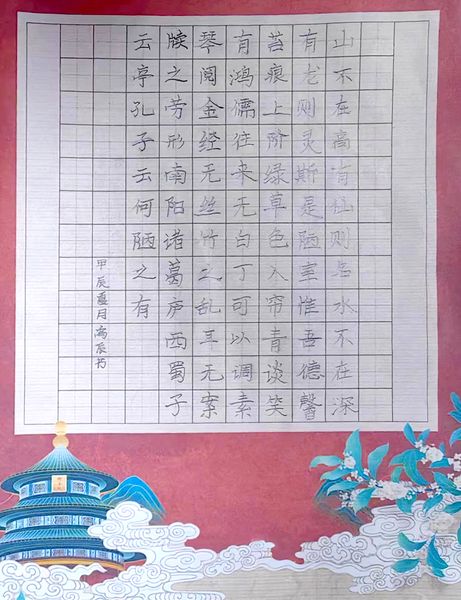 山不在高有仙则名水不在深
有龙则灵斯是陋室惟吾德馨
苔痕上阶绿草色入帘青谈笑
有鸿儒往来无白丁可以调素
琴阅金经无丝竹之乱耳无案
牍之劳形南阳诸葛庐西蜀子
云亭孔子云何陋之有
甲辰夏月高辰书